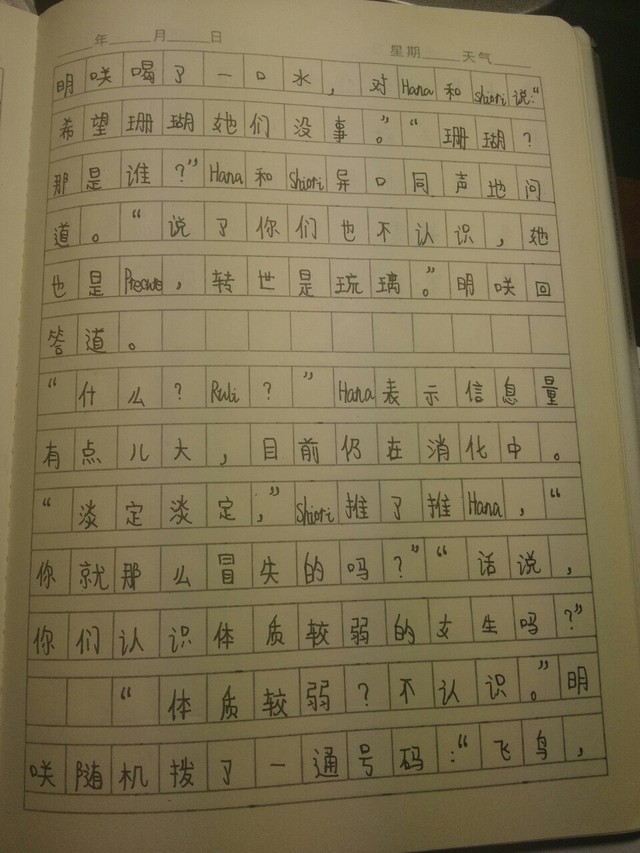 ____年____月____日 星期____天气____
明咲喝了一口水，对Hana和Shiori说：“
希望珊瑚她们没事”。“珊瑚？
那是谁？”Hana和Shiori异口同声地问
道。“说了你们也不认识，她
也是Precure，转世是琉璃。”明咲回
答道。
“什么？Ruli？”Hana表示信息量
有点儿大，目前仍在消化中。
“淡定淡定，”Shiori推了推Hana，“
你就那么冒失的吗？”“话说，
你们认识体质较弱的女生吗？”
“体质较弱？不认识。”明
咲随机拨了一通号码：“飞鸟，